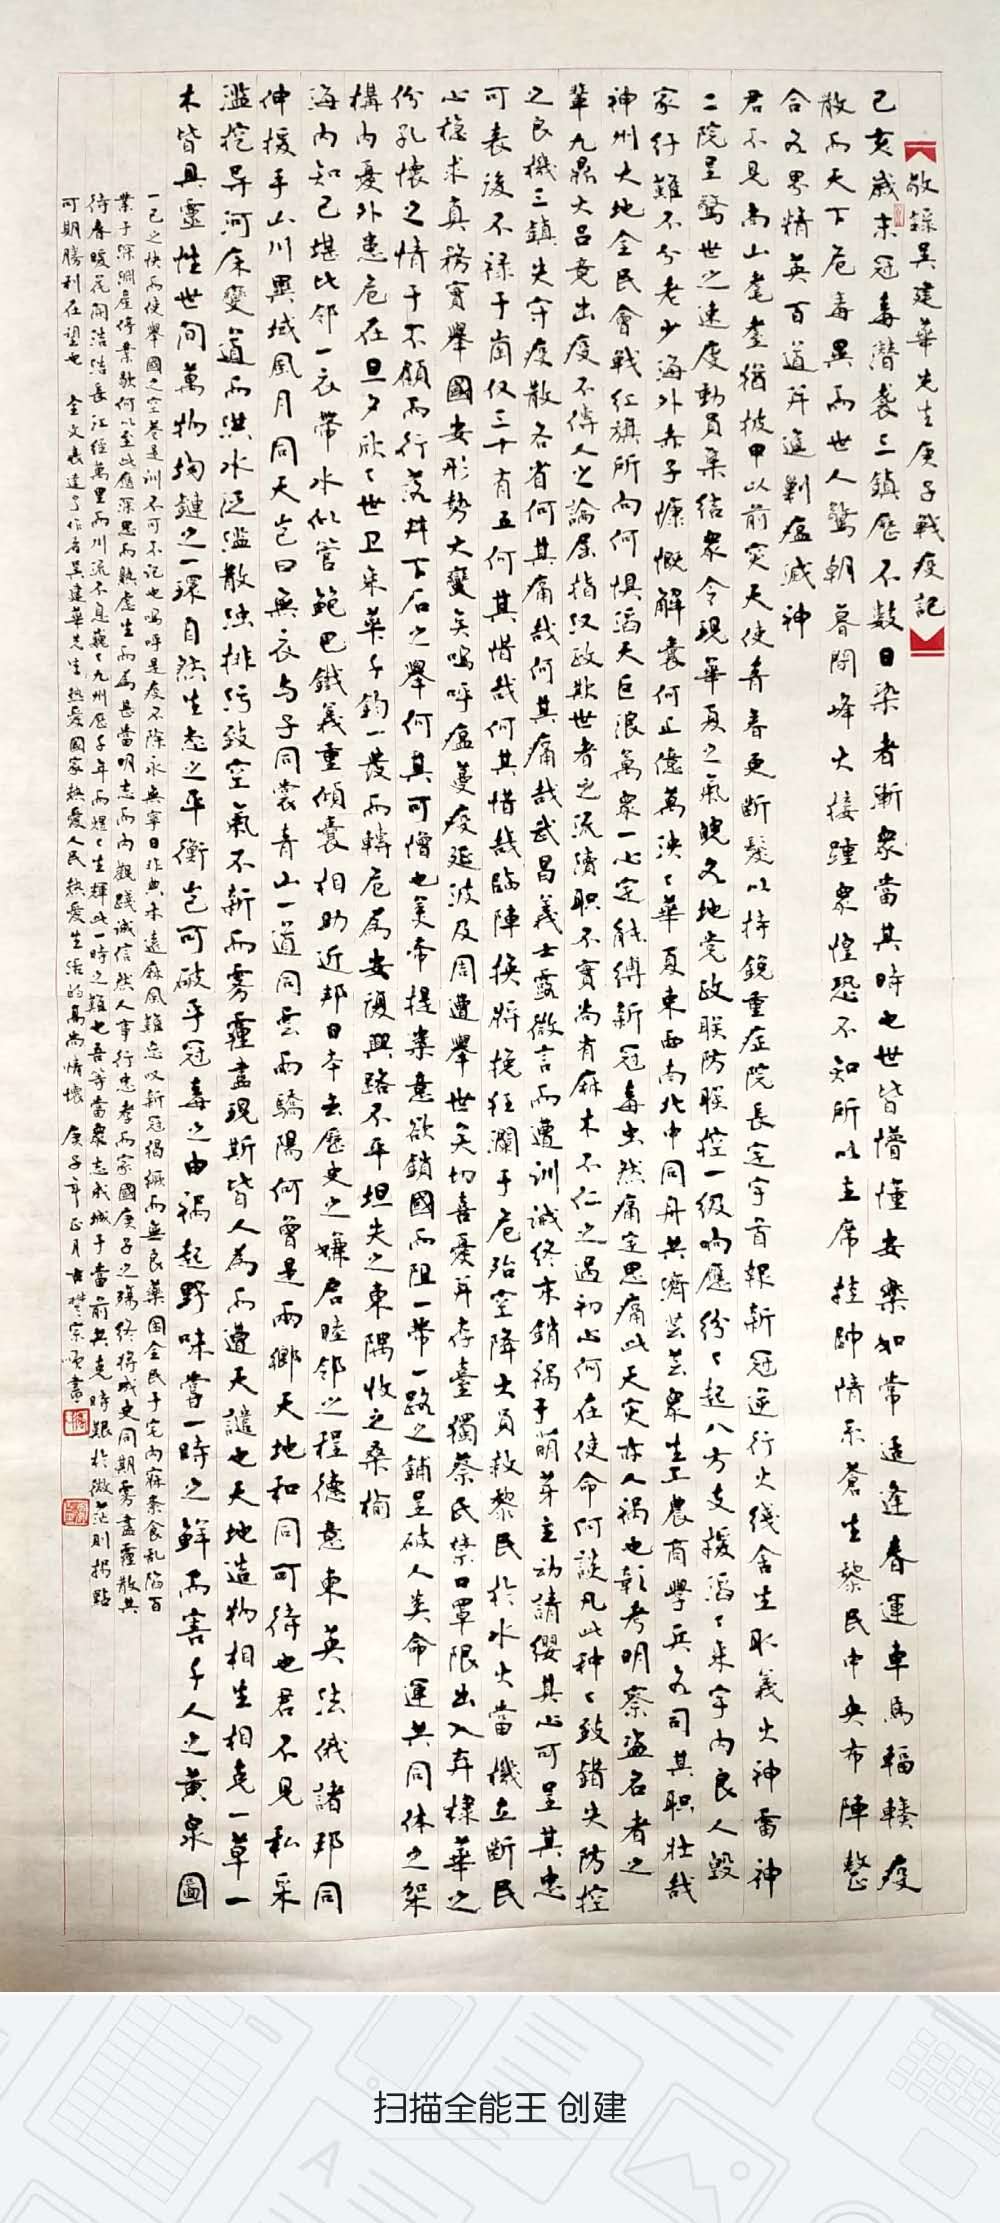 敬錄吴建華先生庚子戰疫記
己亥歲末冠毒潛袭三鎮歷不数日染者漸眾當其時也世皆懵懂安樂如常适逢春運車馬輻輳疫
散而天下危毒異而世人驚朝暮閉峰火接踵眾惶恐不知所以主席挂帥情系蒼生黎民中央布陣整
合各界精英百道并進剿瘟滅神
君不見南山耄耋猶披甲以前突天使青春更断髮以持鋭重症院長定宇首報新冠逆行火线舍生取義火神雷神
二院呈驚世之速度動員集结眾令現華夏之氣魄各地党政联防联控一级响應纷纷起八方支援滔滔来宇内良人毁
家纾難不分老少海外赤子慷慨解囊何止億萬泱泱華夏東西南北中同舟共濟芸芸眾生工農商學兵各司其职壮哉
神州大地全民會戰红旗所向何惧滔天巨浪萬眾一心定能缚新冠毒虫然痛定思痛此天灾亦人祸也彰考明察盗名者之
輩九鼎大吕竟出疫不傳人之論屈指红政欺世者之流瀆职不實尚有麻木不仁之過初心何在使命何談凡此种种致錯失防控
之良機三鎮失守疫散各省何其痛哉何其痛哉武昌義士露微言而遭训诫终未銷祸于萌芽主动請纓其心可呈其忠
可表後不禄于崗仅三十有五何其惜哉何其惜哉臨陣换將挽狂瀾于危殆空降大員救黎民於水火當機立断民
心穩求真務實舉國安形勢大變矣嗚呼瘟蔓疫延波及周遭舉世矣切喜憂并存臺獨蔡氏禁口罩限出入弃棣華之
份孔懷之情于不顧而行落井下石之舉何其可憎也美帝提案意欲鎖國而阻一带一路之鋪呈破人类命運共同体之架
構内憂外患危在旦夕欣欣世卫来華千鈞一發而轉危为安復興路不平坦失之東隅收之桑榆
海内知己堪比邻一衣带水似管鮑巴鐵義重傾囊相助近邦日本去歷史之嫌启睦邻之程德意東英法俄諸邦同
伸援手山川異域風月同天岂曰無衣与子同裳青山一道同云雨驕陽何曾是兩鄉天地和同可待也君不見私采
滥挖导河床變道而洪水泛滥散浊排污致空氣不新而雾霾盡現斯皆人為而遭天譴也天地造物相生相克一草一
木皆具靈性世间萬物均鏈之一環自然生态之平衡岂可破乎冠毒之由祸起野味嘗一時之鮮而害千人之黄泉圖
一己之快而使舉國之空巷是训不可不記也嗚呼是疫不除永無寧日非典未遠麻風難忘以新冠猖獗而無良藥困全民于宅内寐紊食乱陷百
業于深淵屋停業歇何以至此應深思而熟虑生而為甚當明志而内觀踐诚信然人事行忠孝而家國庚子之殤终將成史同期雾盡霾散共
待春暖花開浩浩長江經萬里而川流不息巍巍九州歷千年而熠熠生輝此一時之難也吾等當眾志成城于當前共克時艱於微茫則拐點
可期勝利在望也 全文表達了作者吴建華先生热爱國家热爱人民热爱生活的高尚情懷 庚子年正月 古楚宗順書
扫描全能王 创建